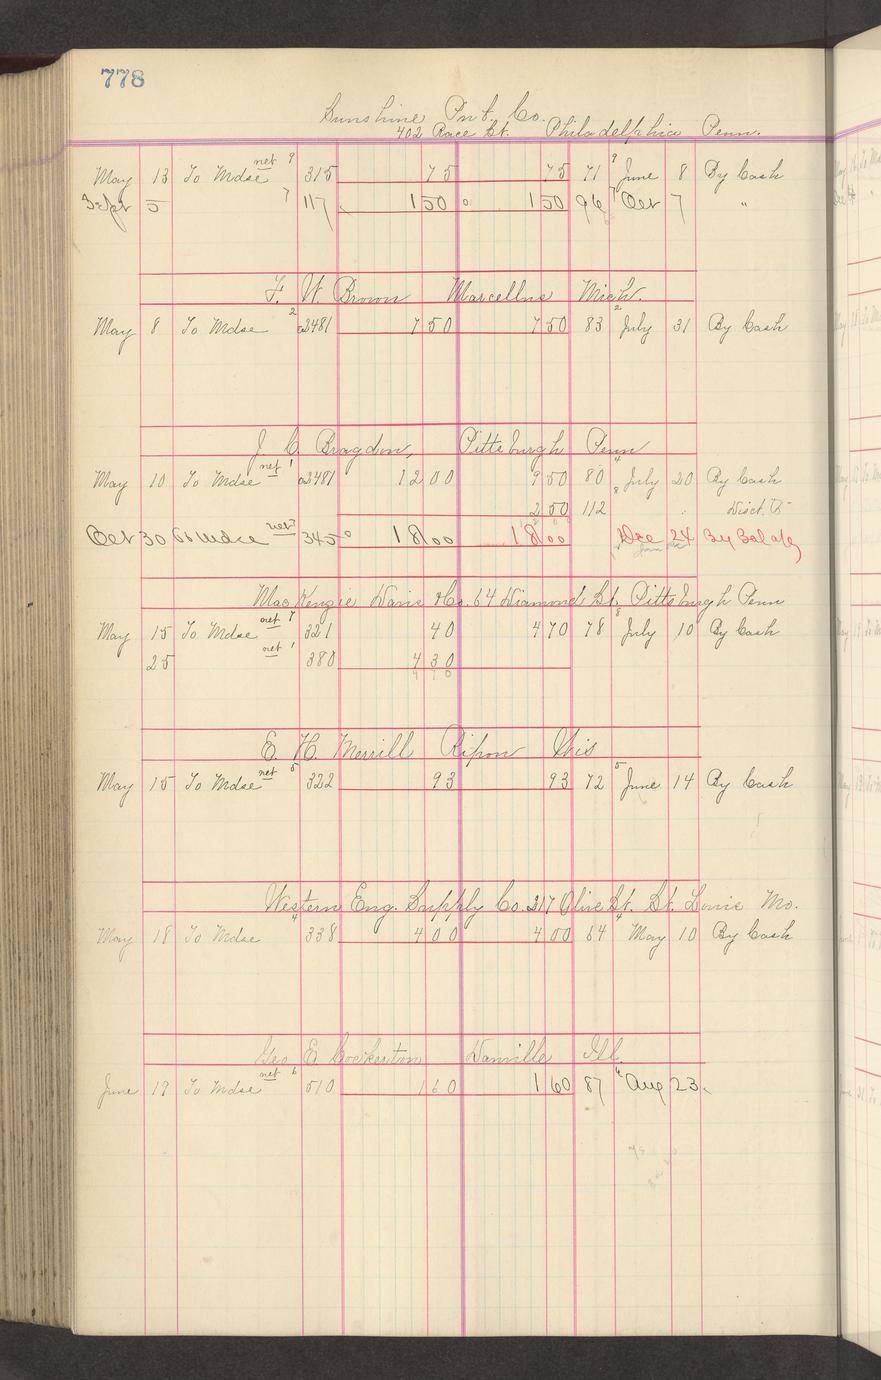 778
Sunshine Pub. Co.
402 Race St. Philadelphia Penn.
May 13 To Mdse net 9 315 75 75 71 9 June 8 By Cash
Sept 5 7 117 1 50 1 50 96 7 Oct 7 "
F. W. Brown Marcellus Mich.
May 8 To Mdse 2 2481 7 50 7 50 83 2 July 31 By Cash
J. C. Bragdon, Pittsburgh Penn
May 10 To Mdse net 1 2481 12 00 9 50 80 4 July 20 By Cash
2 50 112 8 " Disct.
Oct 30 To Mdse net 3 345 18 00 18 00 Dec 24 By Bal
MacKenzie Davis & Co. 64 Diamond St. Pittsburgh Penn
May 15 To Mdse net 7 321 40 4 70 78 8 July 10 By Cash
25 net 1 380 4 30
4 70
E. H. Merrill Ripon Wis
May 15 To Mdse net 5 322 93 93 72 5 June 14 By Cash
Western Eng. Supply Co. 217 Olive St. St. Louis Mo.
May 18 To Mdse 4 338 4 00 4 00 64 4 May 10 By Cash
Geo E Cockerton Danville Ill.
June 19 To Mdse net 6 510 1 60 1 60 87 6 Aug 23